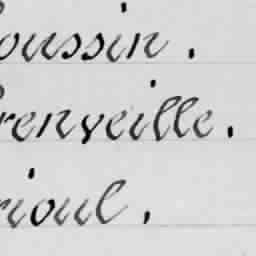 oussin.
renveille.
rioul.